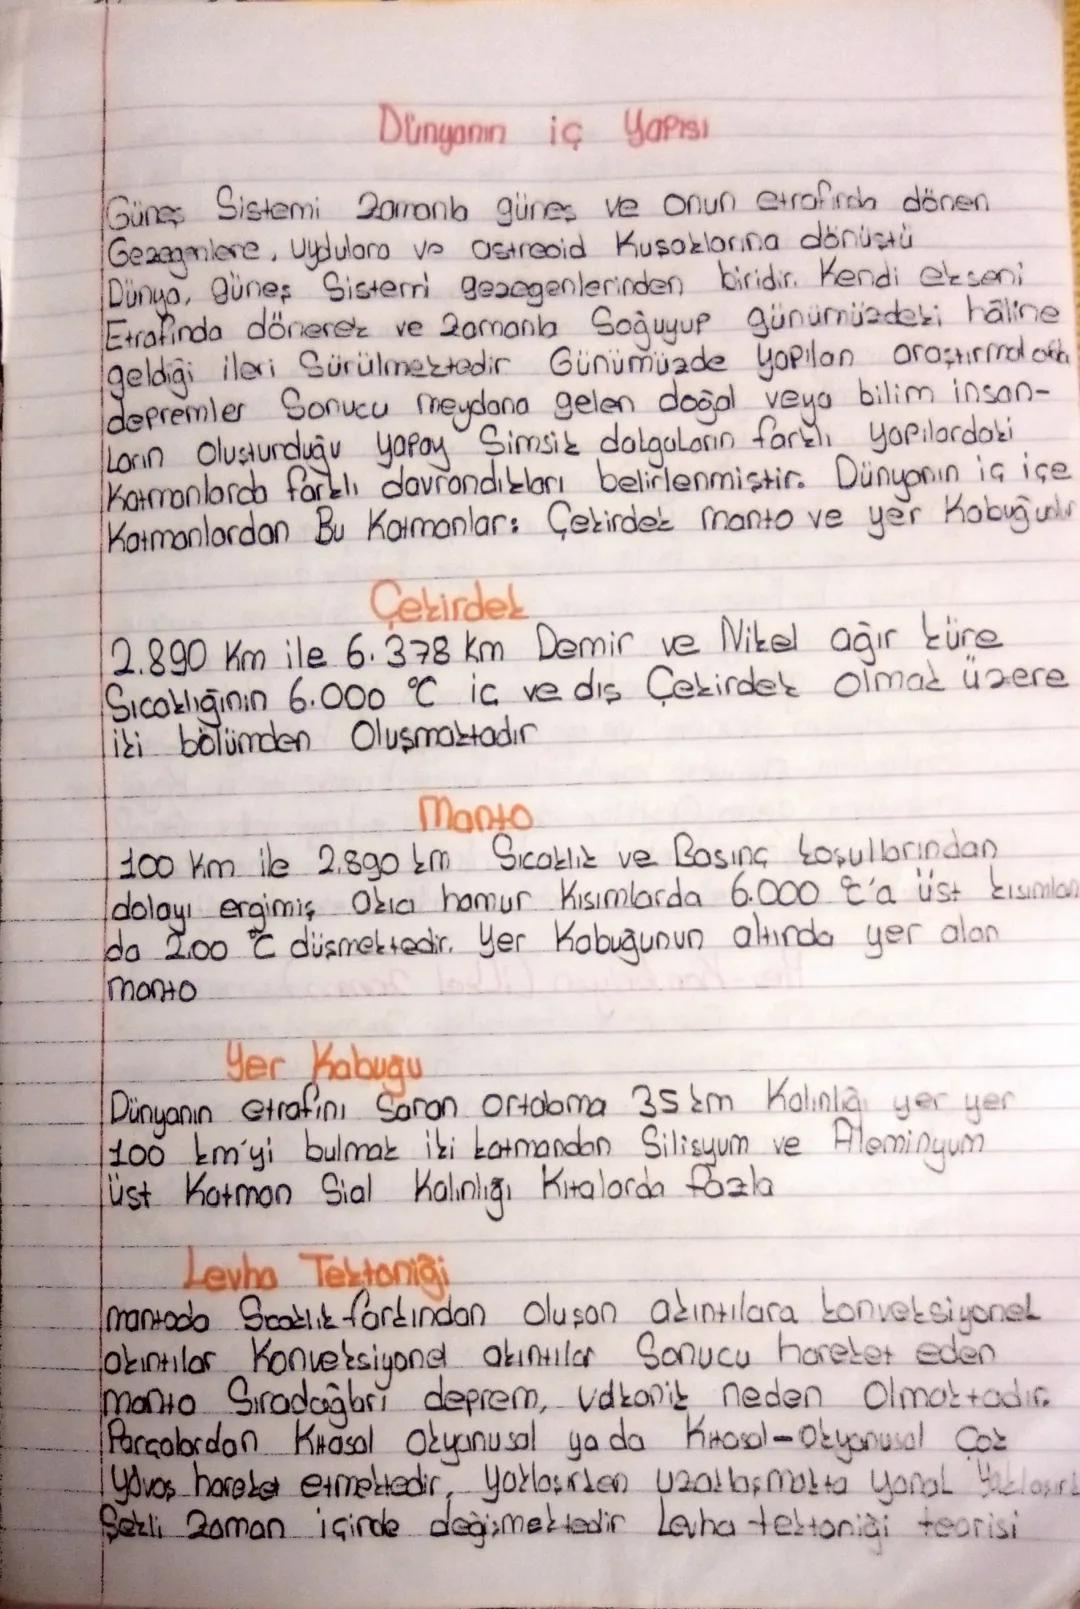 Dünyanın iç Yapısı
Güneş Sistemi Zamanla güneş ve onun etrafında dönen
Gezegenlere, Uydulara ve astreoid Kuşaklarına dönüştü
Dünya, güneş Sistemi gezegenlerinden biridir. Kendi ekseni
Etrafında dönerek ve Zamanla Soğuyup günümüzdeki hâline
geldiği ileri Sürülmektedir Günümüzde yapılan
depremler Sonucu meydana gelen doğal veya bilim insan-
Ların oluşturduğu yapay Simsik dalgaların farklı yapılardaki
Katmanlarda farklı davrandıkları belirlenmiştir. Dünyanın iç içe
Katmanlardan Bu Katmanlar: Çekirdek manto ve yer
Çekirdek
2.890 Km ile 6.378 Km Demir ve Nikel ağır küre
Sıcaklığının 6.000 °C iç ve dış Çekirdek olmak üzere
iki bölümden Oluşmaktadır
Manto
100 Km ile 2.890 km Sıcaklık ve Basınç koşullarından
dolayı ergimiş akıcı hamur Kısımlarda 6.000 °C'a üst kısımlar
da 2.00 °C düşmektedir. Yer Kabuğunun altında yer alan
manto
Yer Kabuğu
Dünyanın etrafını Saran ortalama 35 km Kalınlığı yer yer
100 km'yi bulmak iki katmandan Silisyum ve Aleminyum
üst Katman Sial Kalınlığı Kıtalarda fazla
Levha Tektoniği
mantoda Sıcaklık farkından oluşan akıntılara konveksiyonel
akıntılar Konveksiyonel akıntılar Sonucu hareket eden
manto Sıradağları deprem, volkanik neden Olmaktadır.
Parçalardan Kıtasal Okyanusal ya da Kıtasal-Okyanusal Çok
Yavaş hareket etmektedir, yaklaşırken uzaklaşmakta yanal
Şekli Zaman içinde değişmektedir Levha tektoniği teorisi